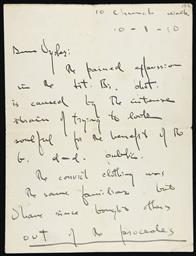 10 Church walk
10-8-10
Dear Sydes:
The pained expression
in the
is caused by the intense
strain of trying to look
soulful for the benefit of the
public.
The convict clothing was
the same familiar but
I have since bought others
out of the proceeds